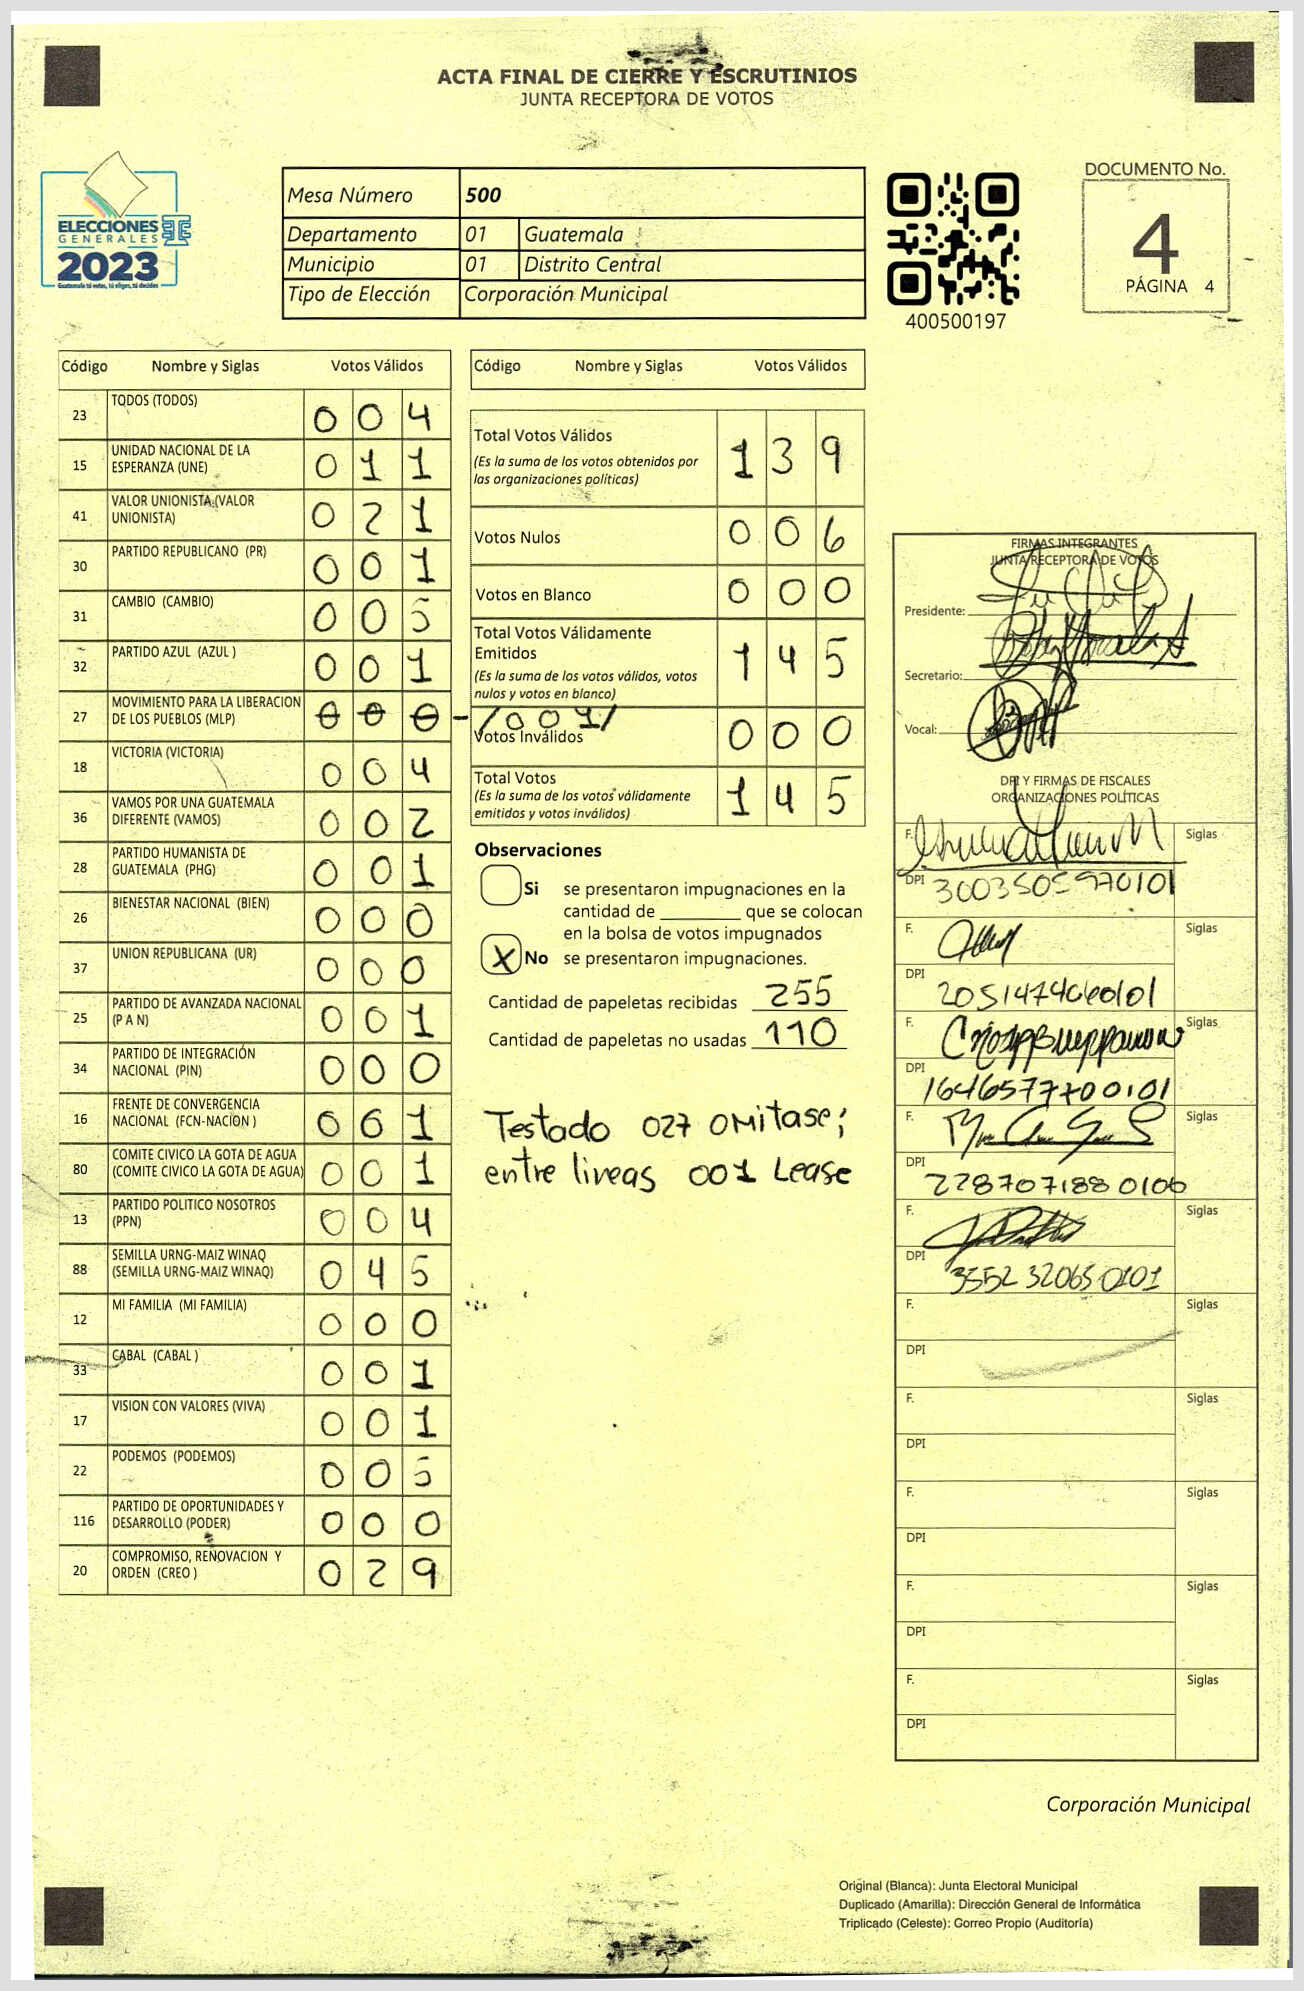 ACTA FINAL DE CIERRE Y ESCRUTINIOS
JUNTA RECEPTORA DE VOTOS
ELECCIONES
GENERALES
2023
Guatemala tú votas, tú eliges, tú decides
Mesa Número 500
Departamento 01 Guatemala
Municipio 01 Distrito Central
Tipo de Elección Corporación Municipal
400500197
DOCUMENTO No.
4
PÁGINA 4
Código Nombre y Siglas Votos Válidos
23 TODOS (TODOS) 0 0 4
15 UNIDAD NACIONAL DE LA ESPERANZA (UNE) 0 1 1
41 VALOR UNIONISTA (VALOR UNIONISTA) 0 2 1
30 PARTIDO REPUBLICANO (PR) 0 0 1
31 CAMBIO (CAMBIO) 0 0 5
32 PARTIDO AZUL (AZUL ) 0 0 1
27 MOVIMIENTO PARA LA LIBERACION DE LOS PUEBLOS (MLP) 0 0 0 -/001/
18 VICTORIA (VICTORIA) 0 0 4
36 VAMOS POR UNA GUATEMALA DIFERENTE (VAMOS) 0 0 2
28 PARTIDO HUMANISTA DE GUATEMALA (PHG) 0 0 1
26 BIENESTAR NACIONAL (BIEN) 0 0 0
37 UNION REPUBLICANA (UR) 0 0 0
25 PARTIDO DE AVANZADA NACIONAL (P A N) 0 0 1
34 PARTIDO DE INTEGRACIÓN NACIONAL (PIN) 0 0 0
16 FRENTE DE CONVERGENCIA NACIONAL (FCN-NACION ) 0 6 1
80 COMITE CIVICO LA GOTA DE AGUA (COMITE CIVICO LA GOTA DE AGUA) 0 0 1
13 PARTIDO POLITICO NOSOTROS (PPN) 0 0 4
88 SEMILLA URNG-MAIZ WINAQ (SEMILLA URNG-MAIZ WINAQ) 0 4 5
12 MI FAMILIA (MI FAMILIA) 0 0 0
33 CABAL (CABAL ) 0 0 1
17 VISION CON VALORES (VIVA) 0 0 1
22 PODEMOS (PODEMOS) 0 0 5
116 PARTIDO DE OPORTUNIDADES Y DESARROLLO (PODER) 0 0 0
20 COMPROMISO, RENOVACION Y ORDEN (CREO ) 0 2 9
Código Nombre y Siglas Votos Válidos
Total Votos Válidos 1 3 9
(Es la suma de los votos obtenidos por
las organizaciones políticas)
Votos Nulos 0 0 6
Votos en Blanco 0 0 0
Total Votos Válidamente
Emitidos 1 4 5
(Es la suma de los votos válidos, votos
nulos y votos en blanco)
Votos Inválidos 0 0 0
Total Votos 1 4 5
(Es la suma de los votos válidamente
emitidos y votos inválidos)
Observaciones
Si se presentaron impugnaciones en la
cantidad de ________ que se colocan
en la bolsa de votos impugnados
X No se presentaron impugnaciones.
Cantidad de papeletas recibidas 255
Cantidad de papeletas no usadas 110
Testado 027 omitase;
entre lineas 001 Lease
FIRMAS INTEGRANTES
JUNTA RECEPTORA DE VOTOS
Presidente:
Secretario:
Vocal:
DPI Y FIRMAS DE FISCALES
ORGANIZACIONES POLÍTICAS
F. Siglas
DPI 3003505970101
F. Siglas
DPI 2051474060101
F. Siglas
DPI 1646577700101
F. Siglas
DPI 2287071880106
F. Siglas
DPI 3552320650101
F. Siglas
DPI
F. Siglas
DPI
F. Siglas
DPI
F. Siglas
DPI
F. Siglas
DPI
Corporación Municipal
Original (Blanca): Junta Electoral Municipal
Duplicado (Amarilla): Dirección General de Informática
Triplicado (Celeste): Correo Propio (Auditoría)